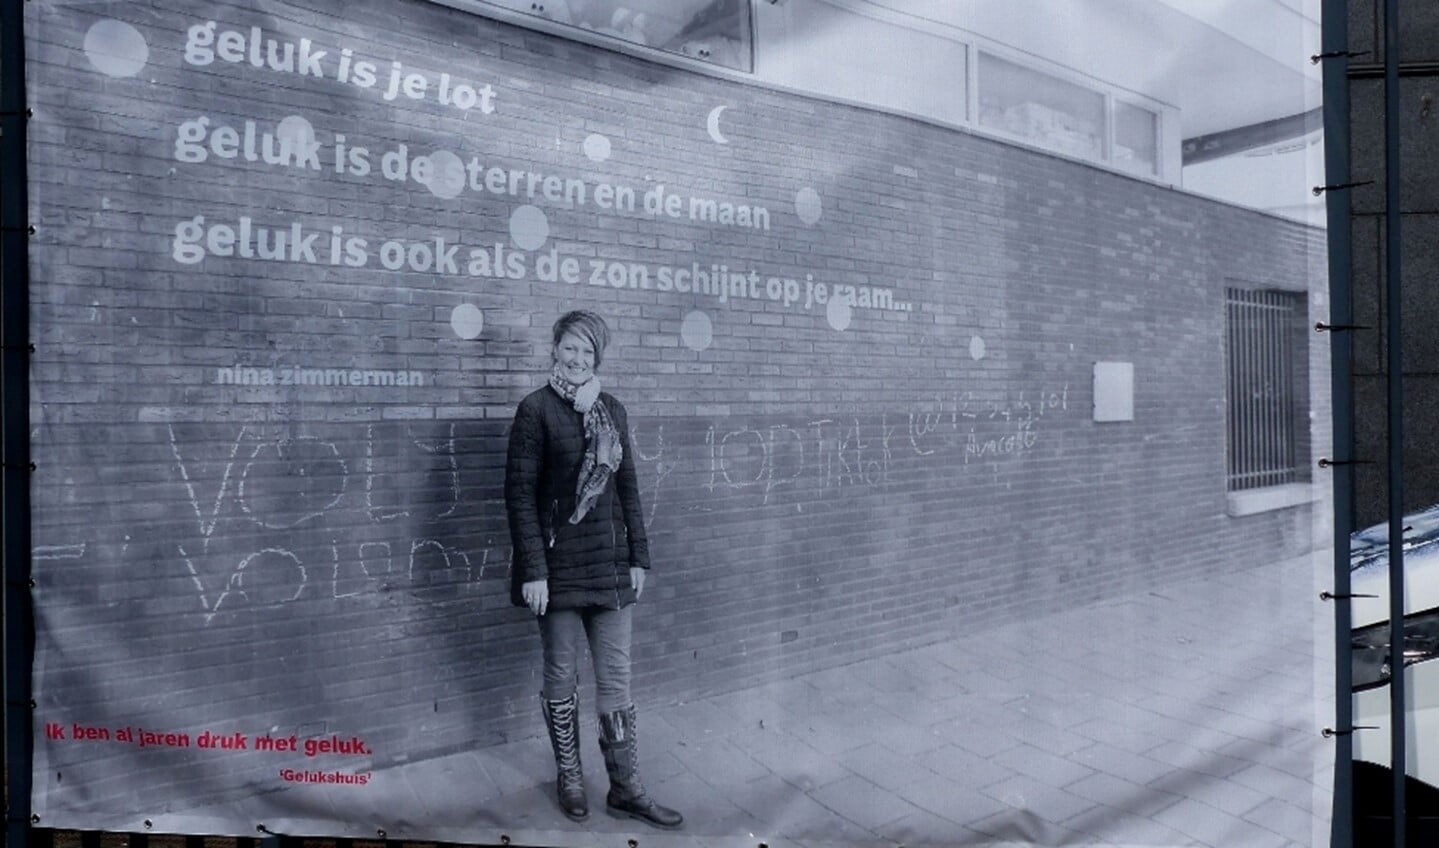 geluk is je lot
geluk is de sterren en de maan
geluk is ook als de zon schijnt op je raam...
nina zimmerman
Ik ben al jaren druk met geluk.
'Gelukshuis'